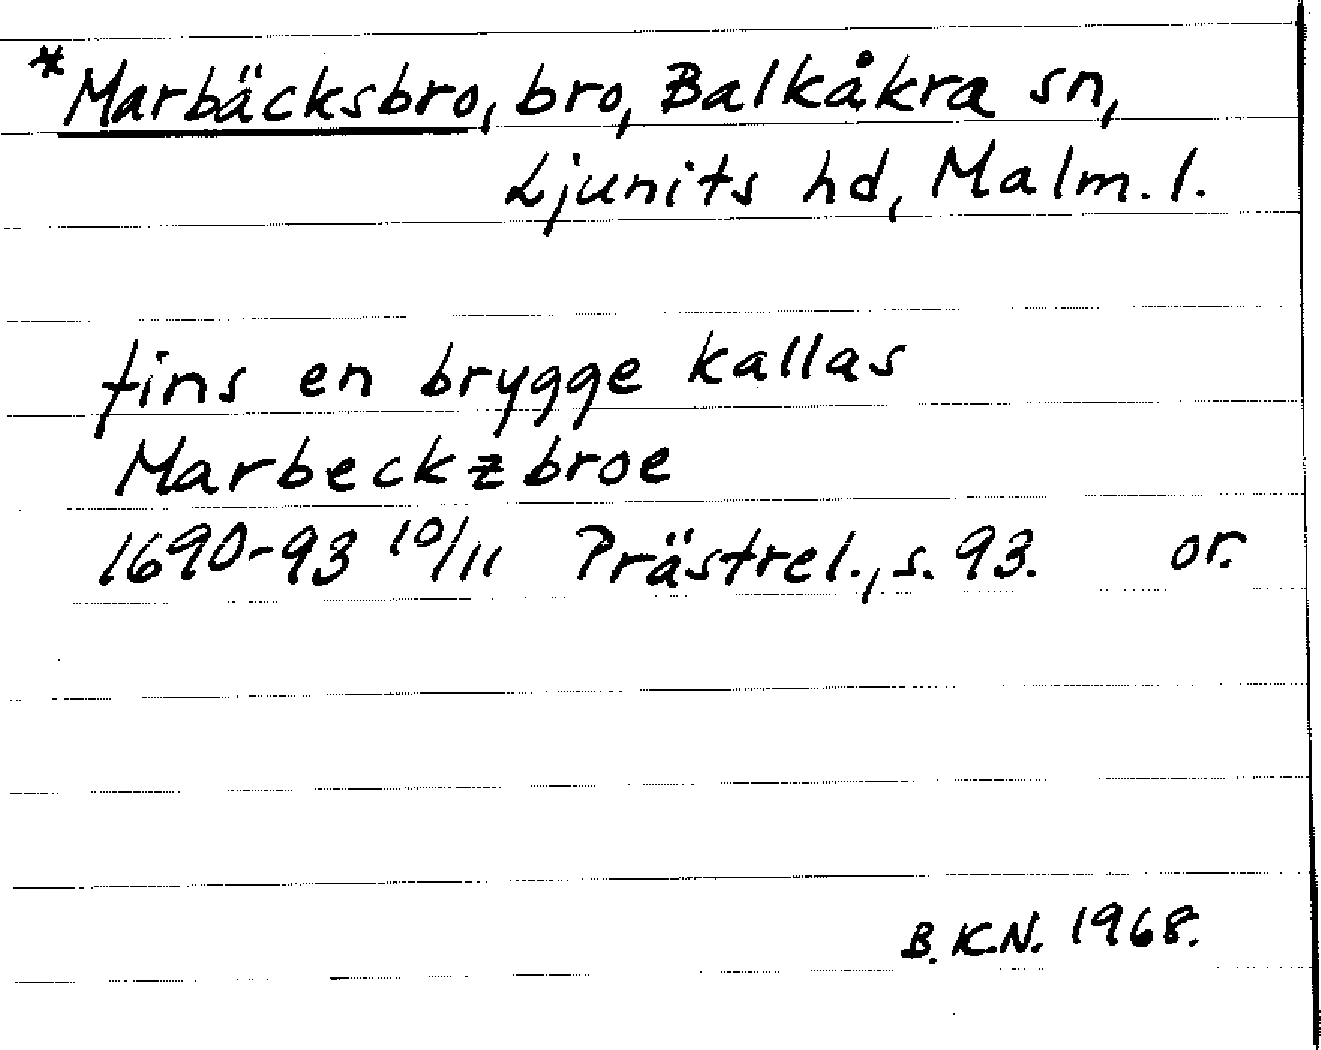 *Marbäcksbro, bro, Balkåkra sn,
Ljunits hd, Malm. l.
fins en brygge kallas
Marbeckzbroe
1690-93 10/11 Prästrel., s. 93. or.
B.K.N. 1968.